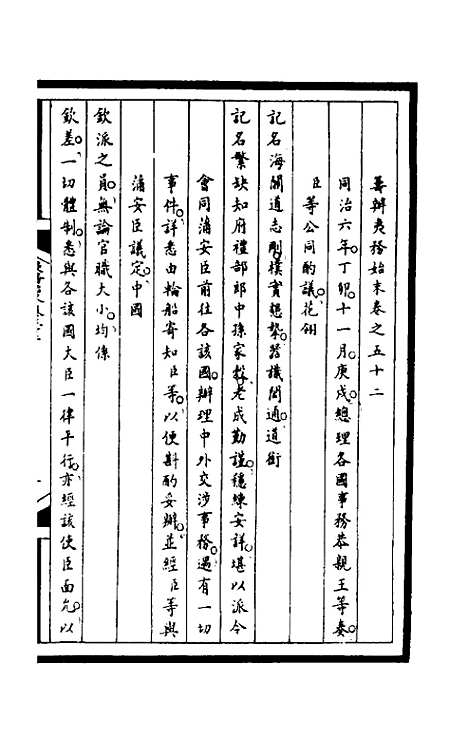 籌辦夷務始末卷之五十二
同治六年丁卯。十一月。庚戌。總理各國事務恭親王等奏。
臣等公同酌議。花翎
記名海關道志剛。樸實懇摯。器識閎通。道銜
記名繁缺知府禮部郎中孫家穀。老成勤謹。穩練安詳。堪以派令
會同蒲安臣前往各該國。辦理中外交涉事務。遇有一切
事件。詳悉由輪船寄知臣等。以便斟酌妥辦。並經臣等與
蒲安臣議定。中國
欽派之員。無論官職大小。均係
欽差。一切體制。悉與各該國大臣一律平行。亦經該使臣面允。以